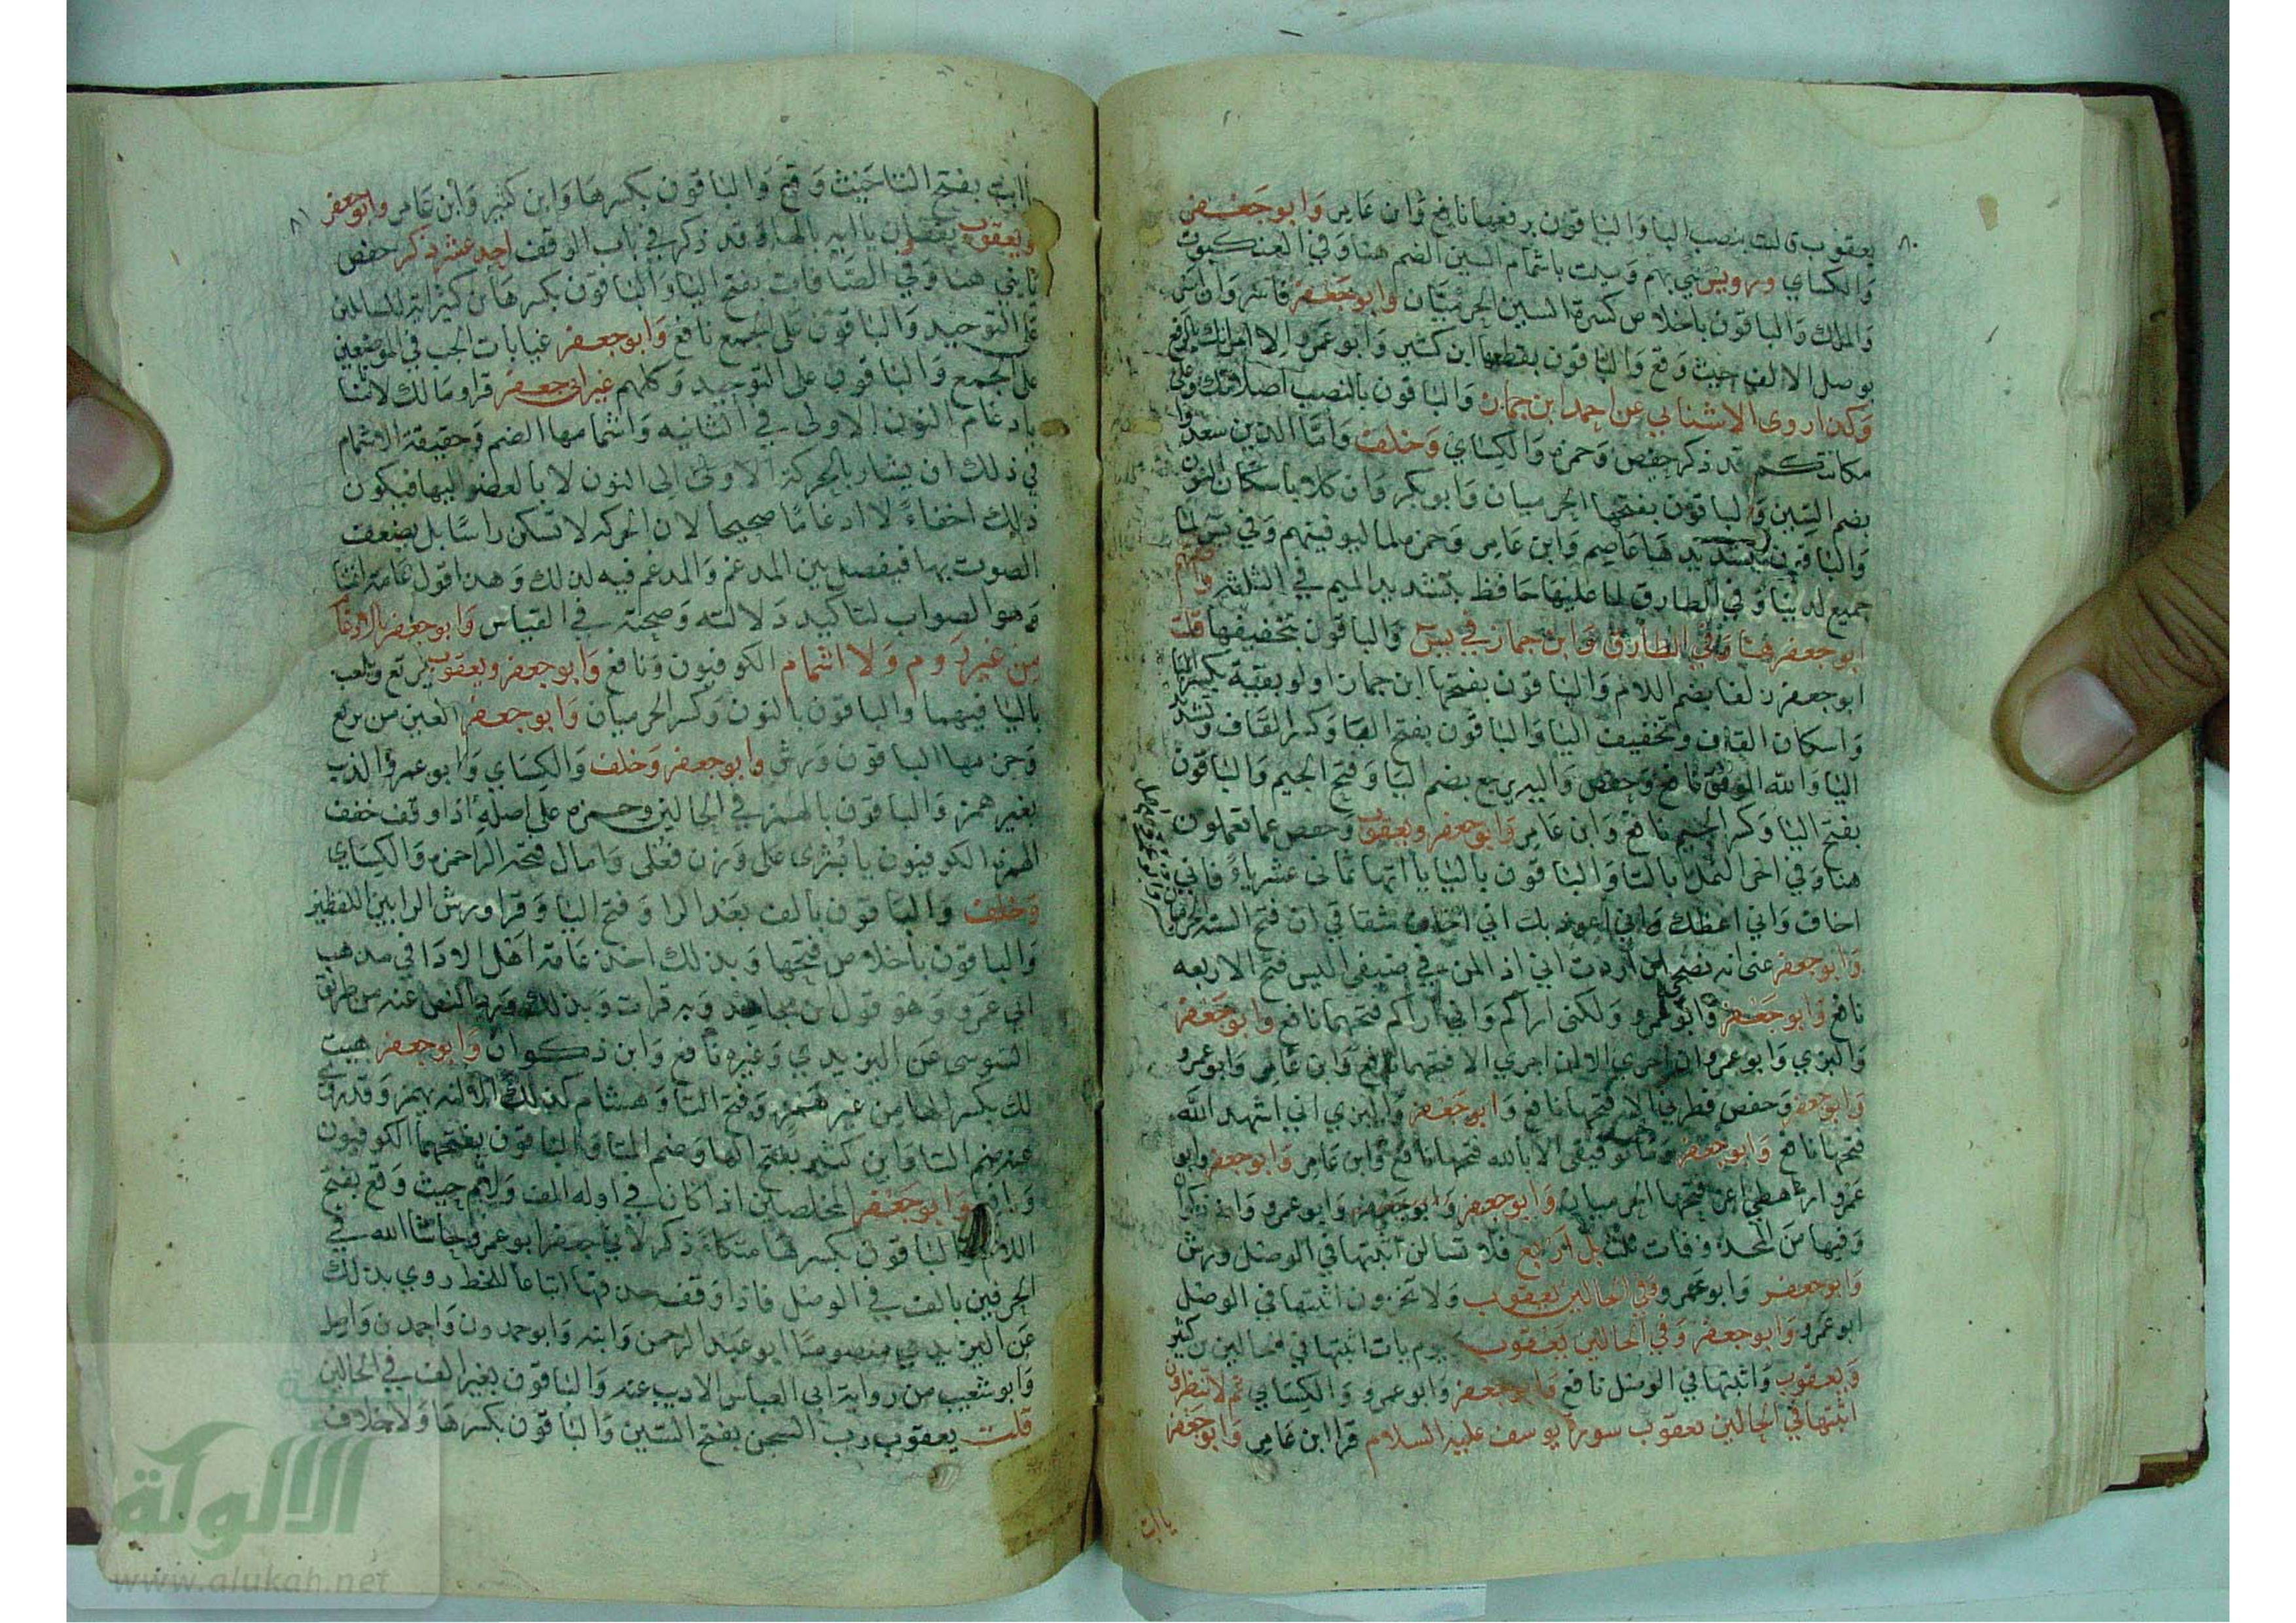 ٨٠
يعقوب قالت بنصب البا والباقون برفعها نافع وابن عامر وابو جعفر
والكساي ورويس سي بهم وسيت باشمام السين الضم هنا وفي العنكبوت
والملك والباقون باخلاص كسرة السين الحرميان وابو جعفر فاسر وان اسر
بوصل الالف حيث وقع والباقون بقطعها ابن كثير وابو عمرو الا امراتك بالرفع
وكذا روى الاشناني عن احمد ابن جماز والباقون بالنصب اصلاتك وعلى
مكانتكم قد ذكر حفص وحمزه والكساي وخلف واما الذين سعدوا
بضم السين والباقون بفتحها الحرميان وابو بكر وان كلا باسكان النون
والباقون بتشديدها عاصم وابن عامر وحمزه لما ليوفينهم وفي يس لما
جميع لدينا وفي الطارق لما عليها حافظ بتشديد الميم في الثلثه وافقهم
ابو جعفر هنا وفي الطارق وابن جماز في يس والباقون بتخفيفها قلت
ابو جعفر زلفا بضم اللام والباقون بفتحها ابن جماز اولو بقية بكسر البا
واسكان القاف وتخفيف اليا والباقون بفتح البا وكسر القاف وتشديد
اليا والله الموفق نافع وحفص واليه يرجع بضم اليا وفتح الجيم والباقون
بفتح اليا وكسر الجيم نافع وابن عامر وابو جعفر ويعقوب وحفص عما تعملون
هنا وفي اخر النمل بالتا والباقون باليا ياآتها ثماني عشرياء فاني
اخاف واني اعظك واني اعوذ بك اني اخاف شقاقي ان فتح الستة الحرميان
وابو جعفر عني انه نصحي ان اردت اني اذا لمن في ضيفي اليس فتح الاربعه
نافع وابو جعفر وابو عمرو ولكني اراكم واني اراكم فتحهما نافع وابو جعفر
والبزي وابو عمرو ان اجري الا ان اجري الا فتحهما نافع وابن عامر وابو عمرو
وابو جعفر وحفص فطرني الا فتحها نافع وابو جعفر والبزي اني اشهد الله
فتحها نافع وابو جعفر وما توفيقي الا بالله فتحها نافع وابن عامر وابو جعفر وابو
عمرو ارهطي اعز فتحها الحرميان وابو جعفر وابو جعفر وابو عمرو وابن ذكوان
وفيها من المحذوفات ثلث بل اربع فلا تسالن اثبتها في الوصل ورش
وابو جعفر وابو عمرو وفي الحالين يعقوب ولا تخزون اثبتها في الوصل
ابو عمرو وابو جعفر وفي الحالين يعقوب يوم يات اثبتها في الحالين بن كثير
ويعقوب واثبتها في الوصل نافع وابو جعفر وابو عمرو والكساي ثم لا تنظرون
اثبتها في الحالين يعقوب سورة يوسف عليه السلام قرا ابن عامر وابو جعفر
ياابت
٨١
ياابت بفتح التا حيث وقع والباقون بكسرها وابن كثير وابن عامر وابو جعفر
ويعقوب يقفان ياابه بالها وقد ذكر في باب الوقف احد عشر ذكر حفص
يابني هنا وفي الصافات بفتح اليا والباقون بكسرها بن كثير اية للسائلين
على التوحيد والباقون على الجمع نافع وابو جعفر غيابات الجب في الموضعين
على الجمع والباقون على التوحيد وكلهم غير ابي جعفر قراو مالك لاتمنا
بادغام النون الاولى في الثانيه واشمامها الضم وحقيقة الاشمام
في ذلك ان يشار بالحركة الاولى الى النون لا بالعضو اليها فيكون
ذلك اخفاء لا ادغاما صحيحا لان الحركه لا تسكن راسا بل يضعف
الصوت بها فيفصل بين المدغم والمدغم فيه لذلك وهذا قول عامة ائمتنا
وهو الصواب لتاكيد دلالته وصحته في القياس وابو جعفر بالادغام
من غير روم ولا اشمام الكوفيون ونافع وابو جعفر ويعقوب يرتع ويلعب
باليا فيهما والباقون بالنون وكسر الحرميان وابو جعفر العين من يرتع
وجزمها الباقون ورش وابو جعفر وخلف والكساي وابو عمرو الذيب
بغير همز والباقون بالهمز في الحالين وحمزه على اصله اذا وقف خفف
الهمزه الكوفيون يا بشرى على وزن فعلى وامال فتحة الرا حمزه والكساي
وخلف والباقون بالف بعد الرا وفتح اليا وقرا ورش الرا بين اللفظين
والباقون باخلاص فتحها وبذلك اخذ عامة اهل الادا في مذهب
ابي عمرو وهو قول ابن مجاهد وبه قرات وبذلك ورد النص عنه من طريق
السوسي عن اليزيدي وغيره نافع وابن ذكوان وابو جعفر هيت
لك بكسر الها من غير همز وفتح التا وهشام كذلك الا انه يهمز وقد روي
عنه ضم التا وابن كثير بفتح الها وضم التا والباقون بفتحهما الكوفيون
ونافع وابو جعفر المخلصين اذا كان في اوله الف ولام حيث وقع بفتح
اللام والباقون بكسرها متكاء ذكر لابي جعفر ابو عمرو حاشا الله في
الحرفين بالف في الوصل فاذا وقف حذفها اتباعا للخط روي بذلك
عن اليزيدي منصوصا ابو عبد الرحمن وابنه وابو حمدون واحمد بن واصل
وابو شعيب من رواية ابي العباس الاديب عنه والباقون بغير الف في الحالين
قلت يعقوب رب السجن بفتح السين والباقون بكسرها ولا خلاف
الألوكة
www.alukah.net